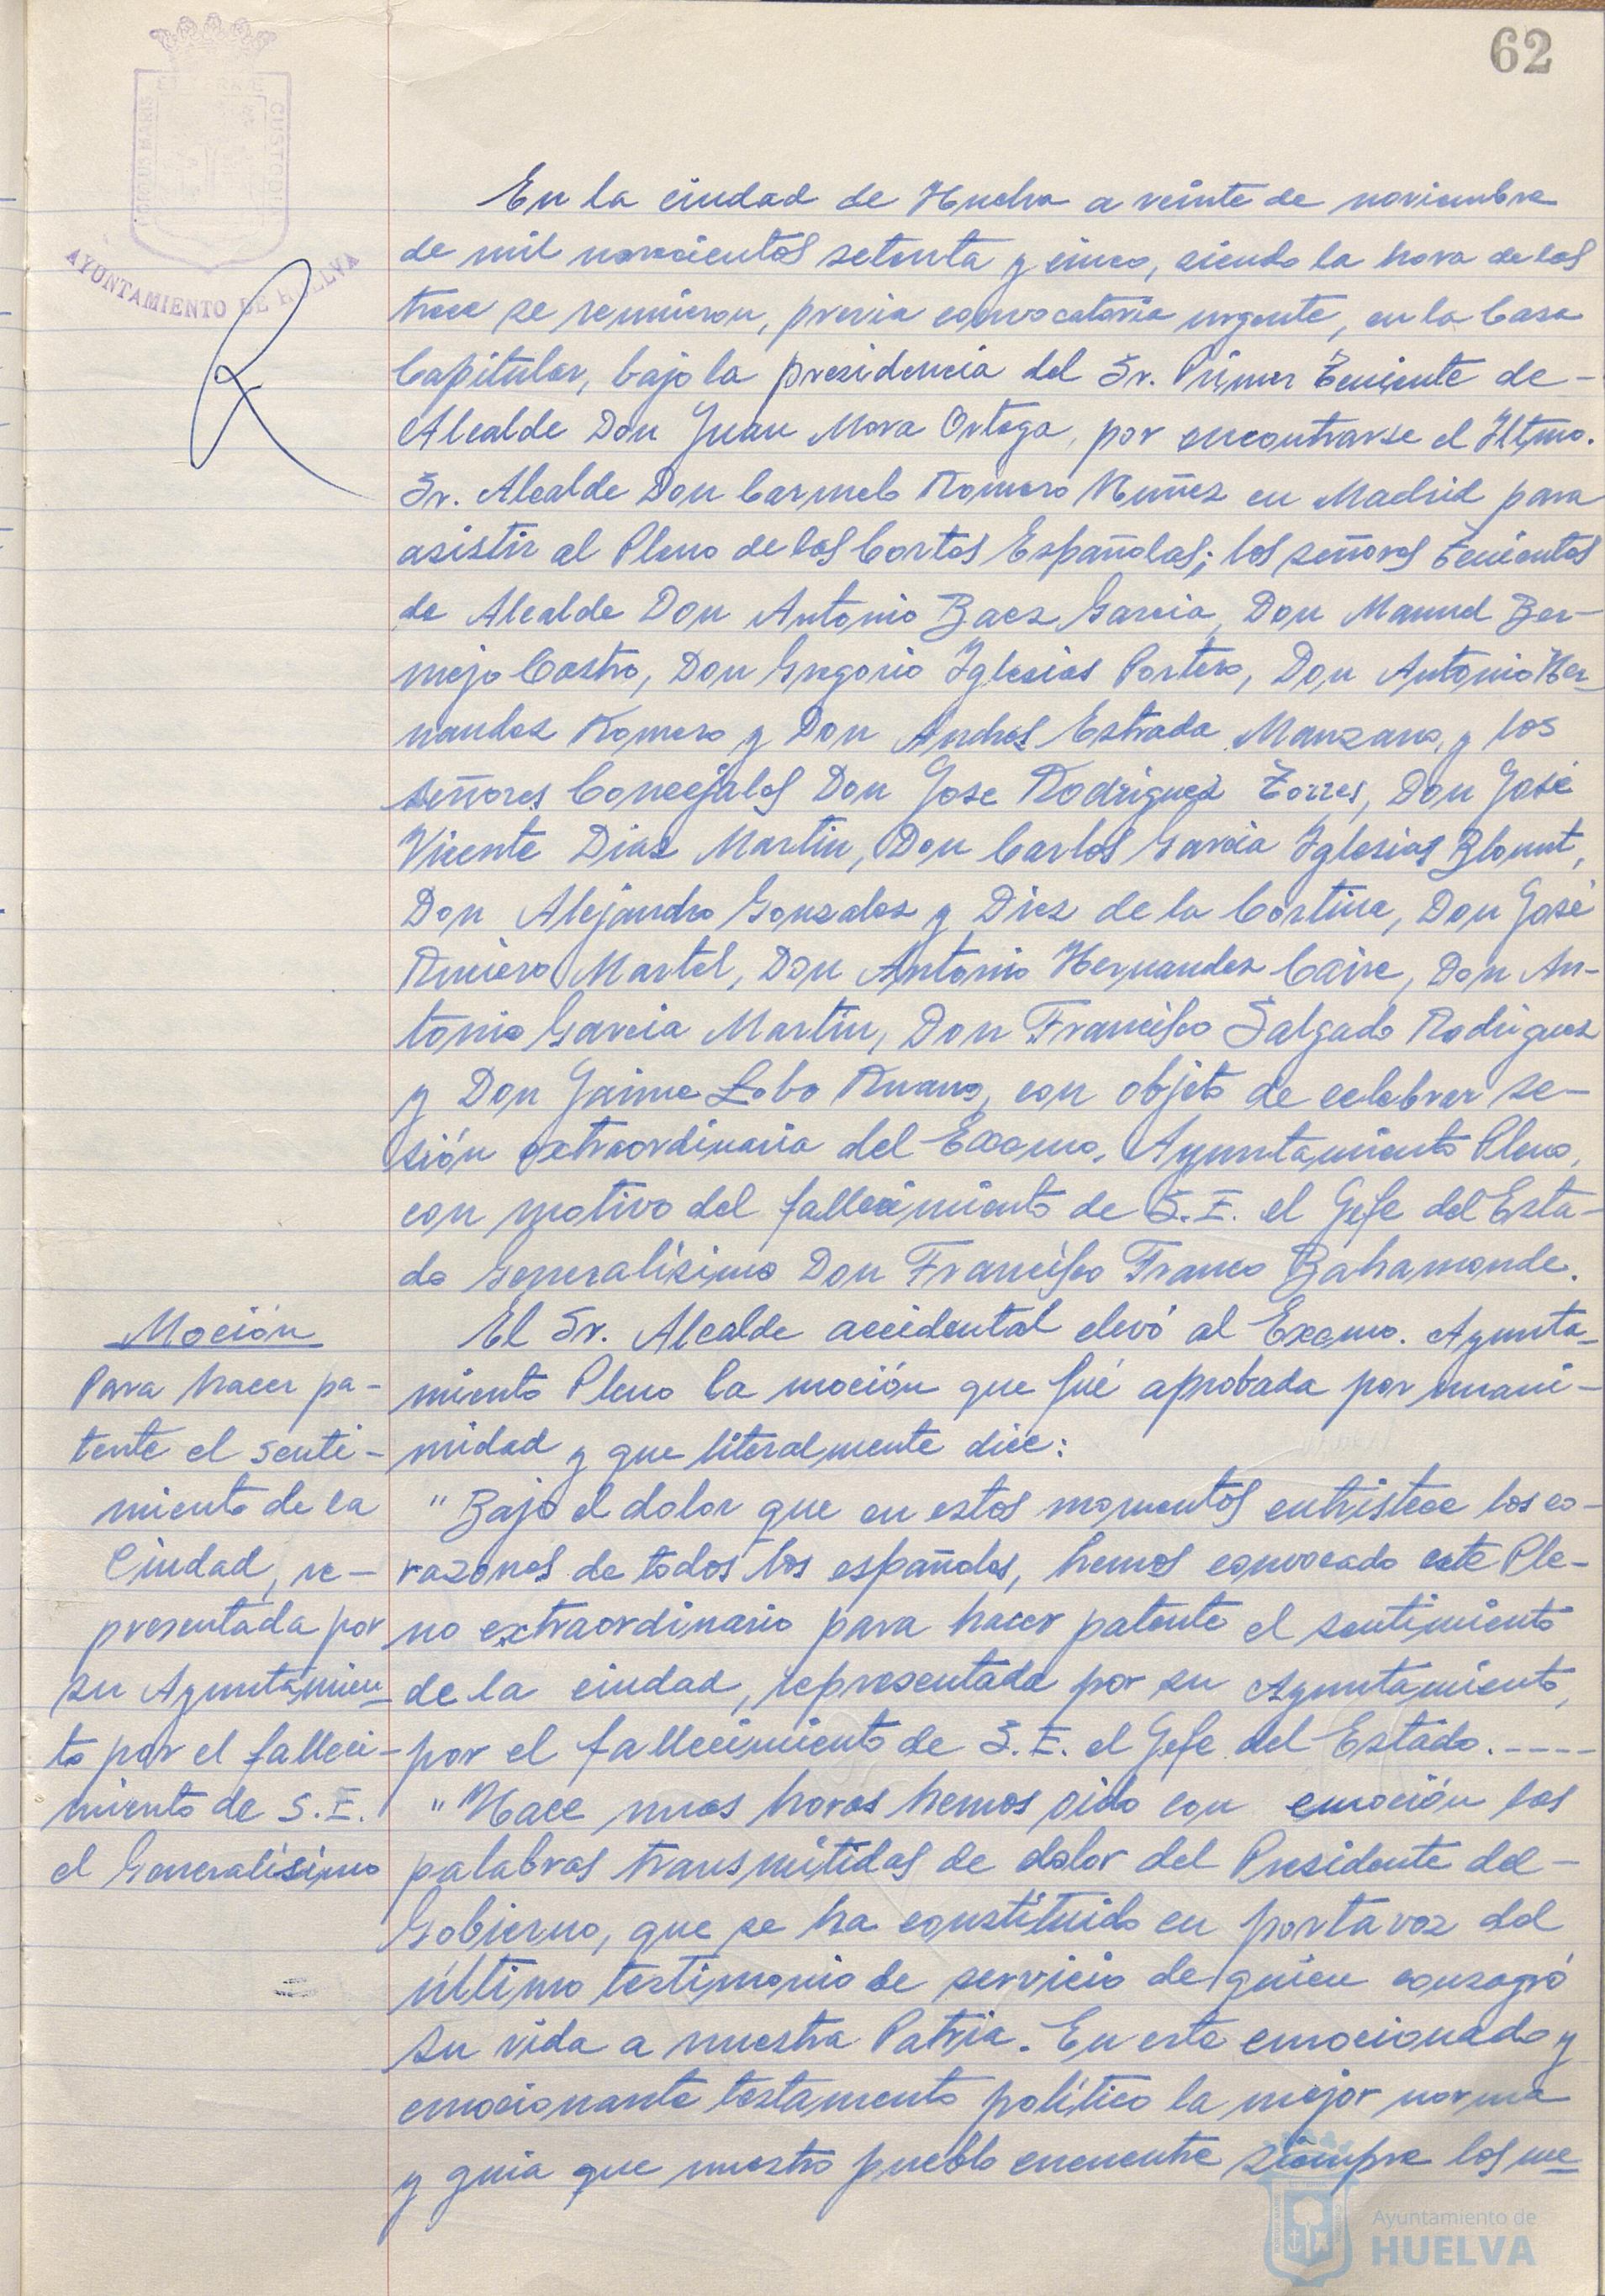 62
PORTUS MARIS
CUSTODIA
AYUNTAMIENTO DE HUELVA
En la ciudad de Huelva a veinte de noviembre
de mil novecientos setenta y cinco, siendo la hora de las
trece se reunieron, previa convocatoria urgente, en la Casa
Capitular, bajo la presidencia del Sr. Primer Teniente de-
Alcalde Don Juan Mora Ortega, por encontrarse el Iltmo.
Sr. Alcalde Don Carmelo Romero Nuñez en Madrid para
asistir al Pleno de las Cortes Españolas; los señores Tenientes
de Alcalde Don Antonio Baez Garcia, Don Manuel Ber-
mejo Castro, Don Gregorio Iglesias Portero, Don Antonio Her-
nandez Romero y Don Andres Estrada Manzano, y los
señores Concejales Don Jose Rodriguez Torres, Don José
Vicente Diaz Martin, Don Carlos Garcia Iglesias Blount,
Don Alejandro Gonzalez y Diez de la Cortina, Don José
Rniero Martel, Don Antonio Hernandez Caire, Don An-
tonio Garcia Martin, Don Francisco Salgado Rodriguez
y Don Jaime Lobo Ruano, con objeto de celebrar se-
sión extraordinaria del Excmo. Ayuntamiento Pleno,
con motivo del fallecimiento de S.E. el Gefe del Esta-
do Generalísimo Don Francisco Franco Bahamonde.
Moción
Para hacer pa-
tente el senti-
miento de la
Ciudad, re-
presentada por
su Ayuntamien-
to por el falleci-
miento de S.E.
el Generalísimo
El Sr. Alcalde accidental elevó al Excmo. Ayunta-
miento Pleno la moción que fué aprobada por unani-
midad y que literalmente dice:
"Bajo el dolor que en estos momentos entristece los co-
razones de todos los españoles, hemos convocado este Ple-
no extraordinario para hacer patente el sentimiento
de la ciudad, representada por su Ayuntamiento,
por el fallecimiento de S.E. el Gefe del Estado.----
"Hace unas horas hemos oido con emoción las
palabras transmitidas de dolor del Presidente del-
Gobierno, que se ha constituido en portavoz del
último testimonio de servicio de quien consagró
su vida a nuestra Patria. En este emocionado y
emocionante testamento político la mejor norma
y guia que nuestro pueblo encuentre siempre los me-
Ayuntamiento de
HUELVA